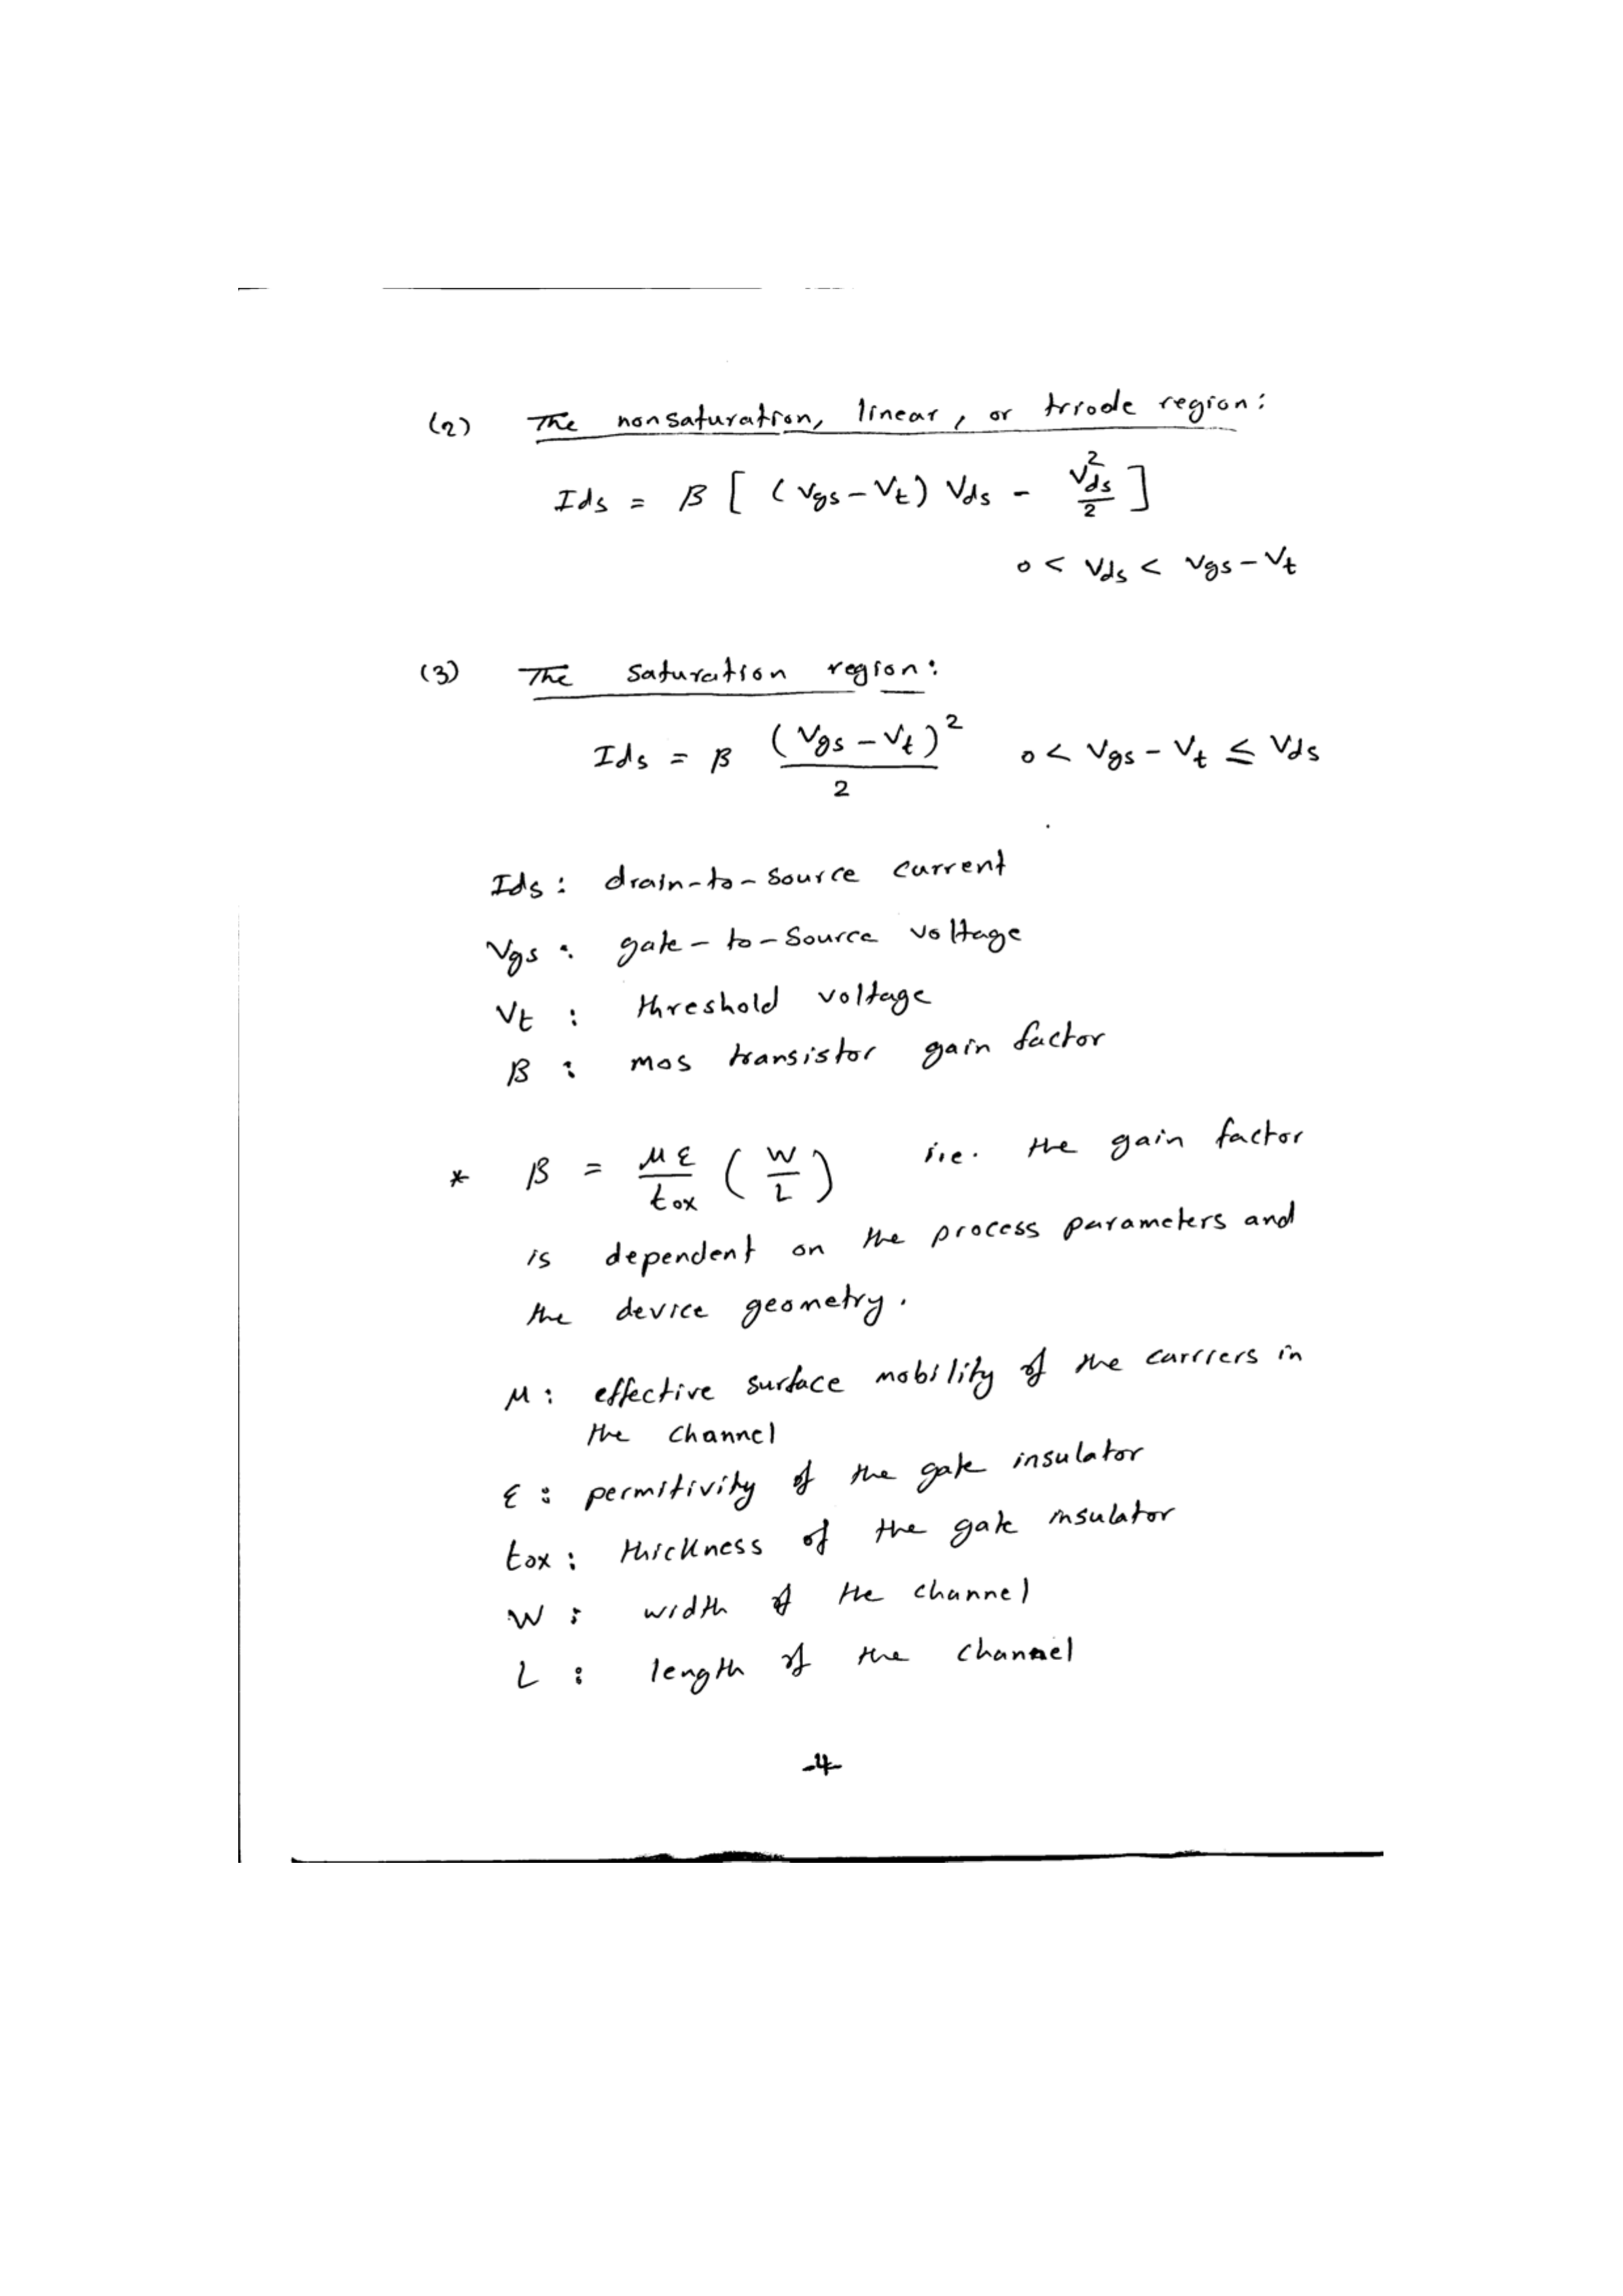 (2) The nonsaturation, linear, or triode region:
Ids = β [ (Vgs - Vt) Vds - Vds²/2 ]
0 < Vds < Vgs - Vt
(3) The saturation region:
Ids = β (Vgs - Vt)²/2 0 < Vgs - Vt ≤ Vds
Ids : drain-to-source current
Vgs : gate-to-source voltage
Vt : threshold voltage
β : mos transistor gain factor
* β = με/tox (W/L) i.e. the gain factor
is dependent on the process parameters and
the device geometry.
μ : effective surface mobility of the carriers in
the channel
ε : permitivity of the gate insulator
tox : thickness of the gate insulator
W : width of the channel
L : length of the channel
-4-